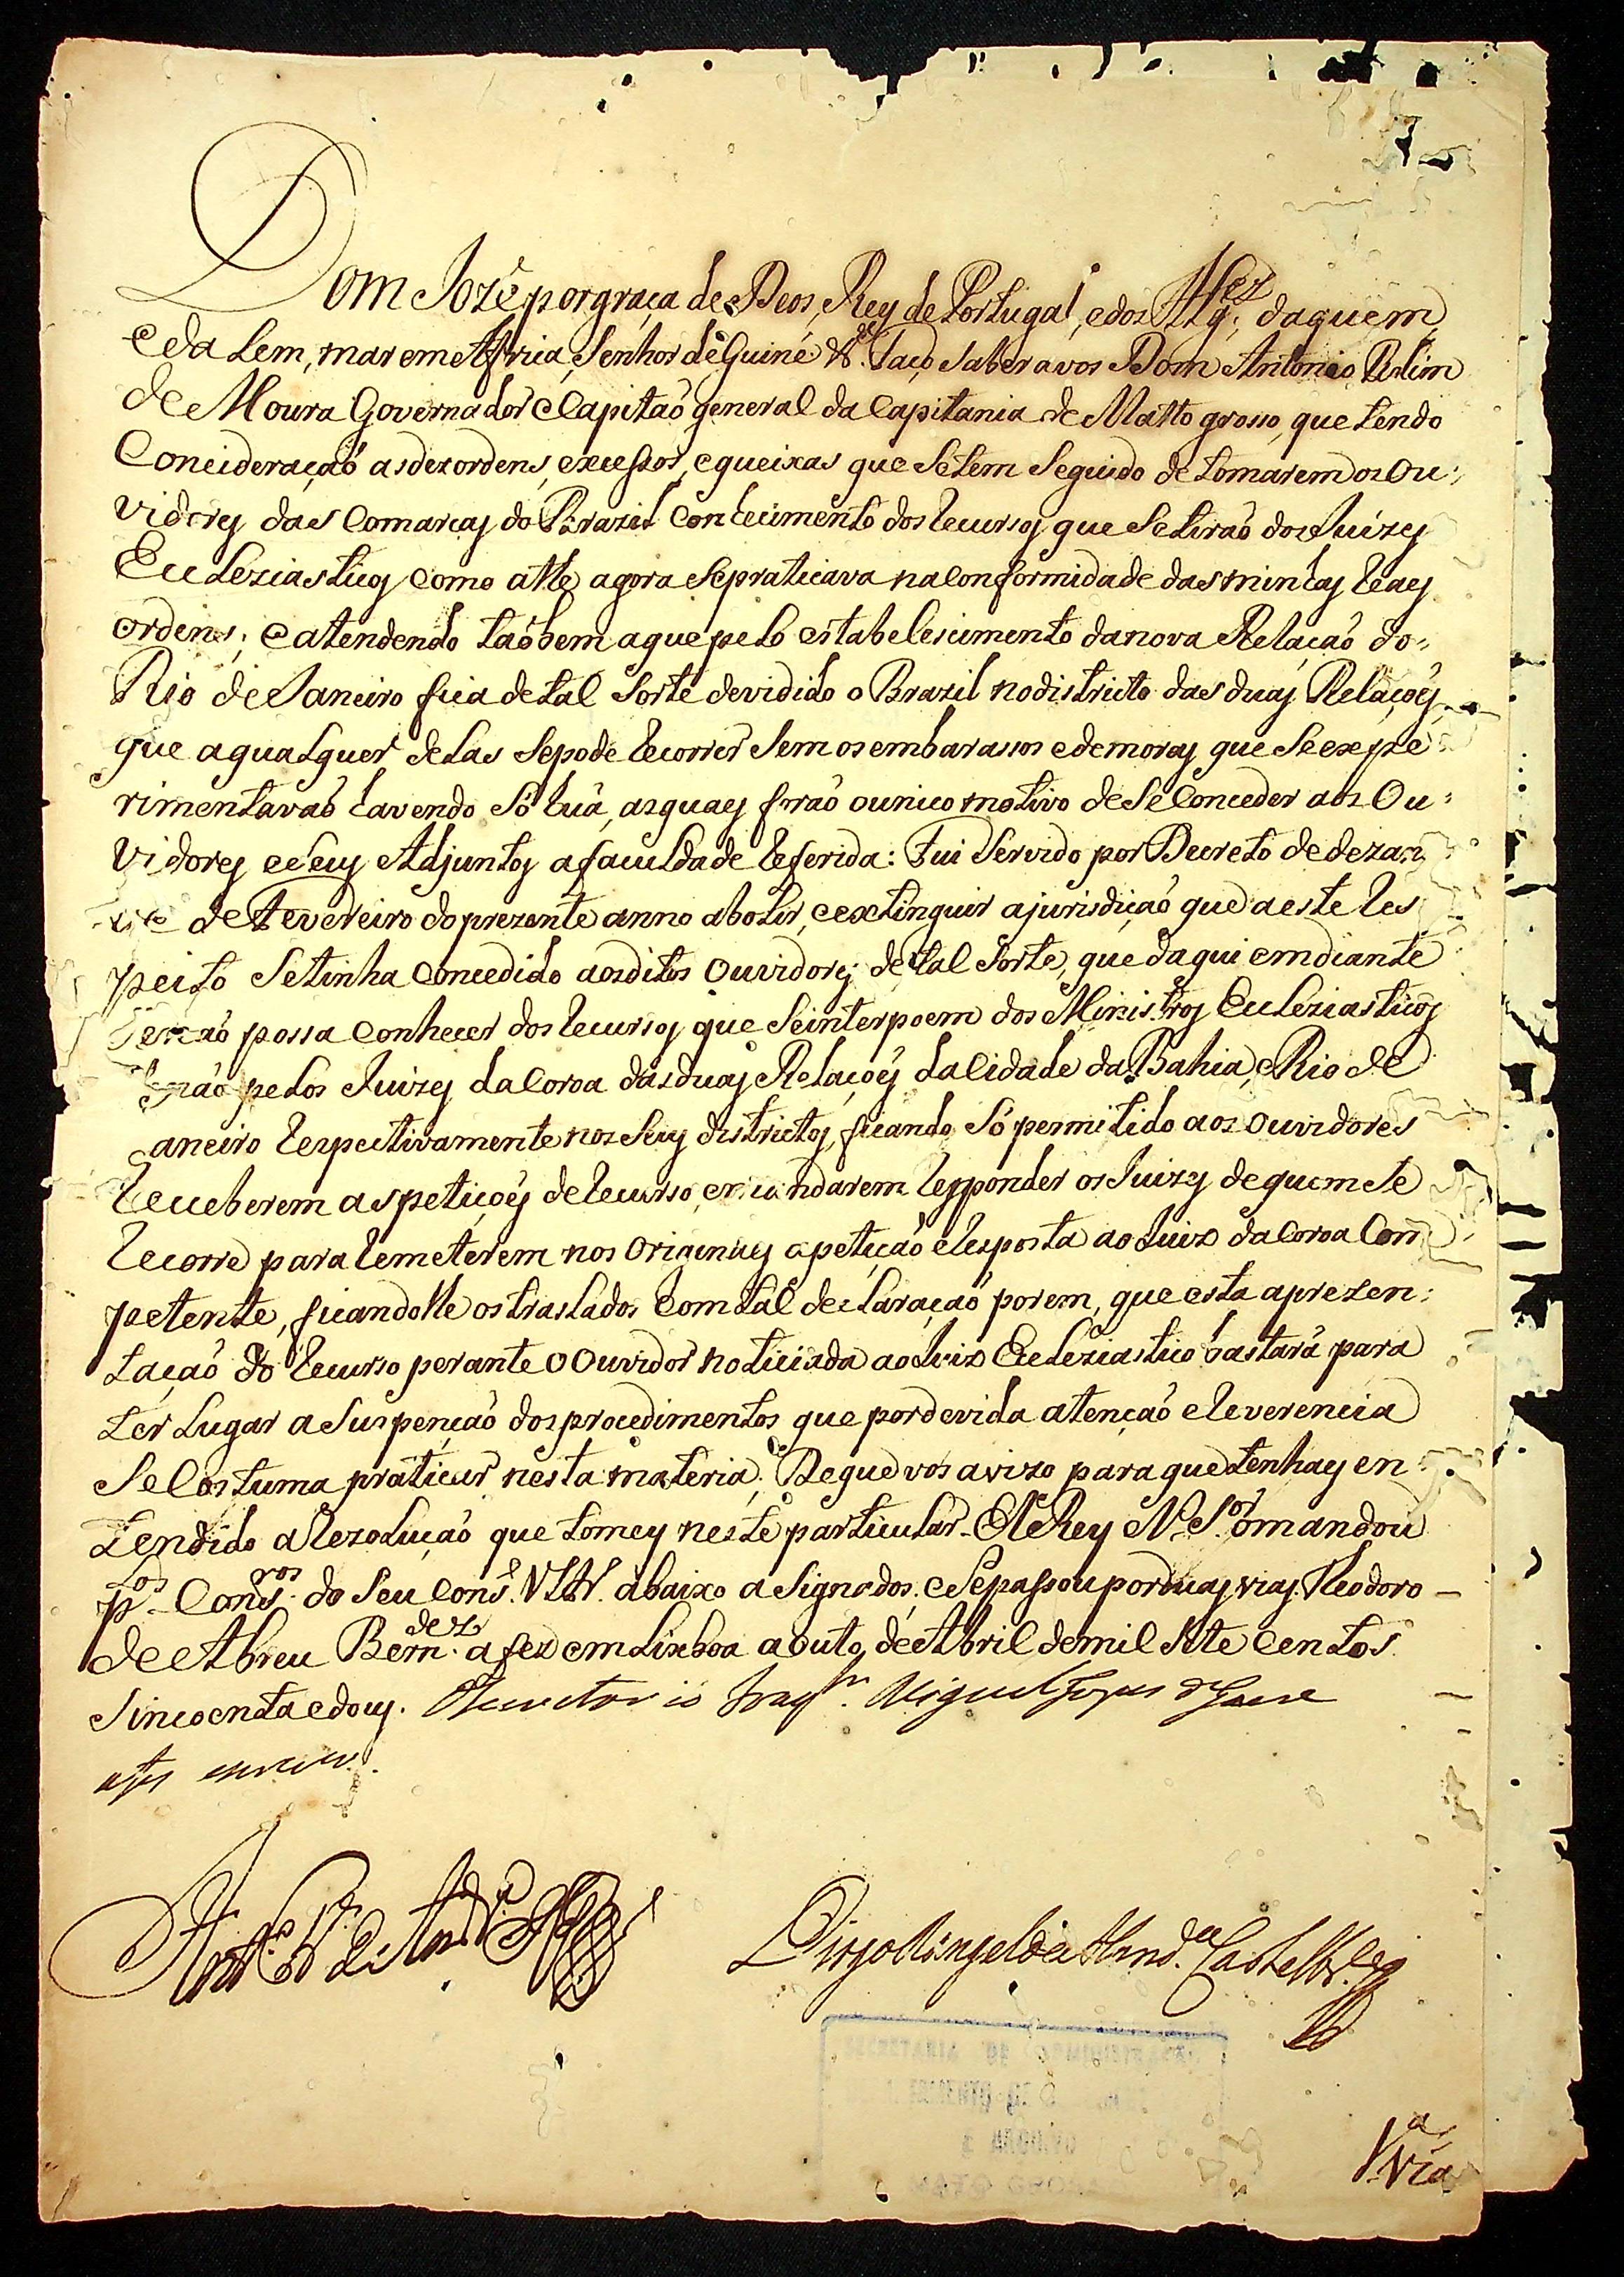 Dom Jozê por graça de Deos, Rey de Portugal, e dos Alg.es daquem,
e da Lem, mar em Africa, Senhor de Guiné &.ª Faço saber a vos Dom Antonio Rolim
de Moura Governador e Capitaõ general da Capitania de Matto grosso, que tendo
Conciderçaõ as dezordens, excessos, e queixas que se tem seguido de tomarem os ou:
vidores das Comarcas do Brazil conhecimento dos recursos que se tiraõ dos Juizes
Ecleziasticos como athe agora se praticava na conformidade das minhas reaes
ordens; e atendendo taõbem a que pelo estabelescimento da nova Relaçaõ do:
Rio de Janeiro fica de tal sorte devidido o Brazil no districto das duas Relaçoẽs,
que a qualquer delas se pode recorrer sem os embarassos e demoras que se expe
rimentavaõ havendo sô huã, as quaes foraõ o unico motivo de se conceder aos Ou:
vidores e seus Adjuntos a faculdade referida: Fui servido por Decreto de deza
de Fevereiro do prezente anno abolir, e extinguir a jurisdiçaõ que a este res
peito se tinha concedido aos ditos ouvidores; de tal sorte, que daqui em diante
se naõ possa conhecer dos recursos que se interpoem dos Ministros Ecleziasticos
senaõ pelos Juizes da Coroa das duas Relaçoẽs da Cidade da Bahia, e Rio de
aneiro respectivamente nos seus districtos, ficando sô permitido aos ouvidores
receberem as petiçoẽs de recurso, e mandarem responder os Juizes de quem se
recorre para remeterem nos originaes a petiçaõ e resposta ao Juiz da Coroa Com
petente, ficandolhe os traslados com tal declaraçaõ porem, que esta aprezen:
taçaõ do recurso perante o ouvidor noticiada ao Juiz Ecleziastico bastarâ para
ter lugar a suspençaõ dos procedimentos que por devida atençaõ e reverencia
se costuma praticar nesta materia; De que vos avizo para que tenhaes en
tendido a rezoluçaõ que tomey neste particular. ElRey N. S.or o mandou
p.los Cons.ros do seu Cons.º Ultr. abaixo asignados, e se passou por duas vias. Theodoro —
de Abreu Bern.des a fez em Lixboa a outo de Abril de mil sete centos
sincoenta e dous. O secretario Miguel Lopes de Lavre
a fes escrever.
Diogo Rangel de Almd.ª Castelbr.co
1.ª via